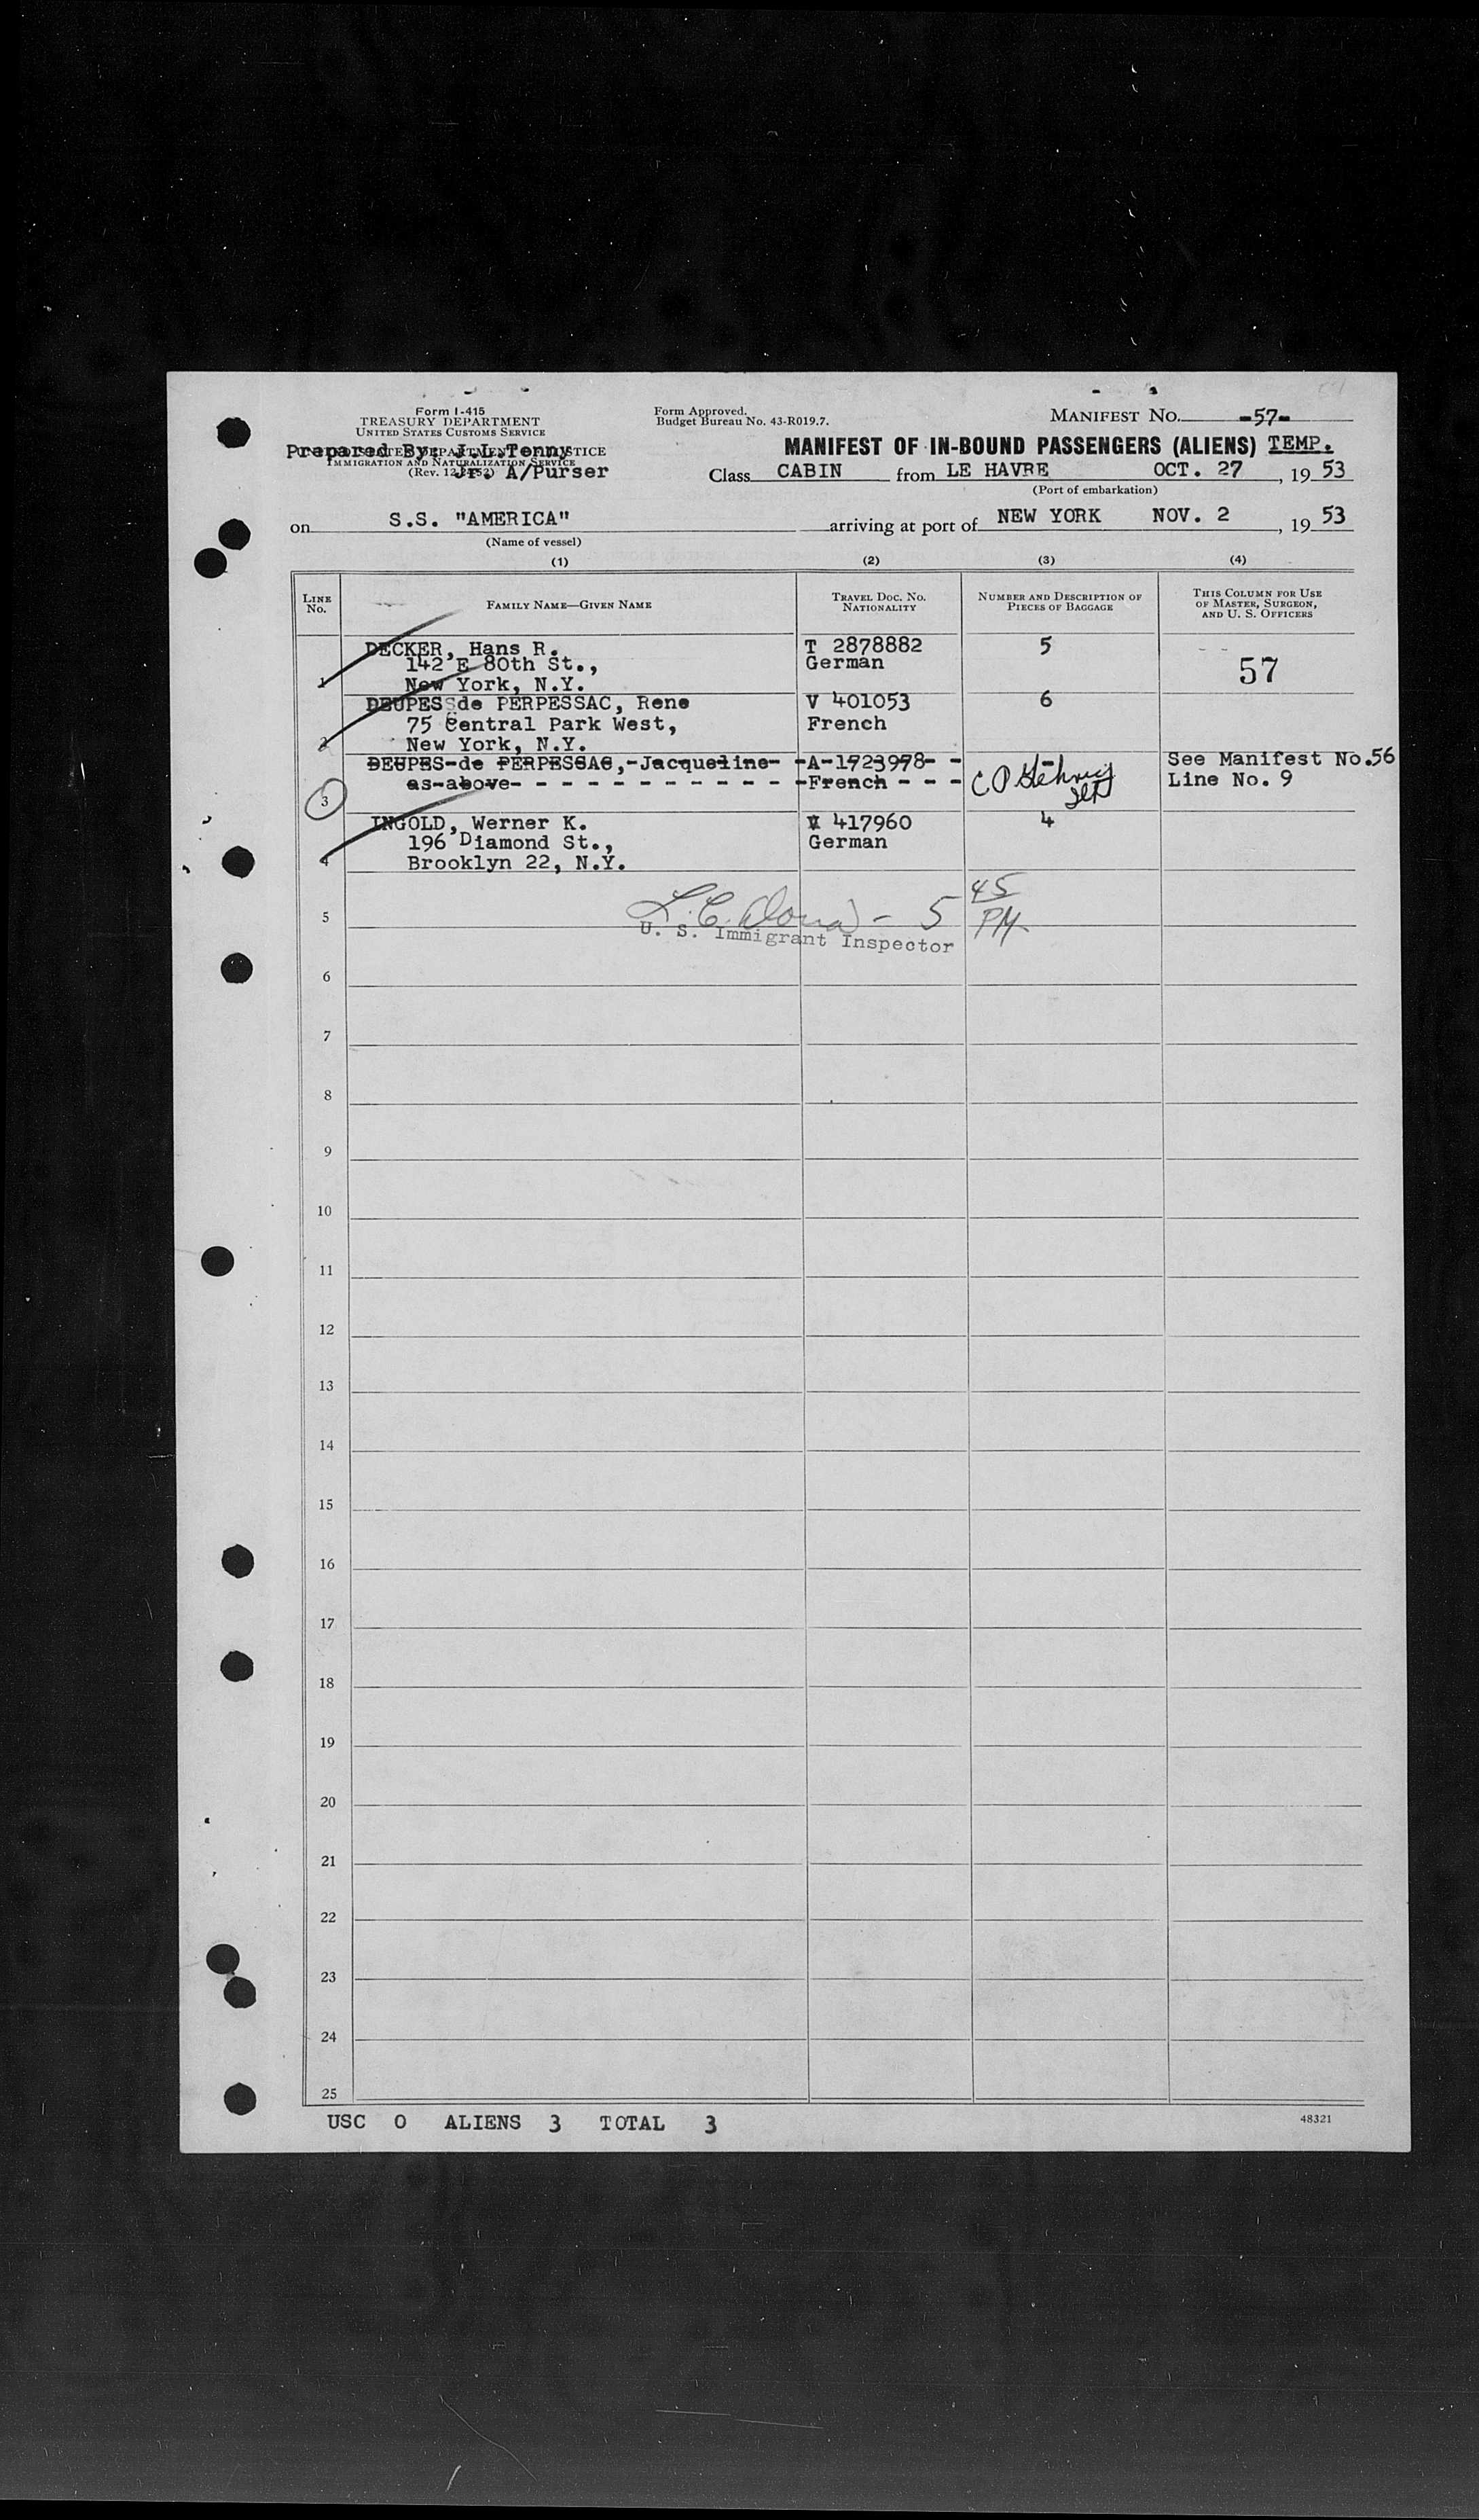 Form I-415
TREASURY DEPARTMENT
UNITED STATES CUSTOMS SERVICE
Prepared By: J.L.Tenny
IMMIGRATION AND NATURALIZATION SERVICE
Jr. A/Purser
Form Approved.
Budget Bureau No. 43-R019.7.
MANIFEST NO. -57-
MANIFEST OF IN-BOUND PASSENGERS (ALIENS) TEMP.
Class CABIN from LE HAVRE OCT. 27, 1953
(Port of embarkation)
on S.S. "AMERICA" arriving at port of NEW YORK NOV. 2, 1953
(Name of vessel)
(1) (2) (3) (4)
LINE No. FAMILY NAME—GIVEN NAME TRAVEL DOC. NO. NATIONALITY NUMBER AND DESCRIPTION OF PIECES OF BAGGAGE THIS COLUMN FOR USE OF MASTER, SURGEON, AND U. S. OFFICERS
DECKER, Hans R. T 2878882 5
142 E 80th St., German 57
1 New York, N.Y.
DEUPES de PERPESSAC, Rene V 401053 6
75 Central Park West, French
2 New York, N.Y.
DEUPES-de PERPESSAC,-Jacqueline- -A-1723978- - See Manifest No.56
as-above- - - - - - - - - - - -French - - - Line No. 9
3
INGOLD, Werner K. V 417960 4
196 Diamond St., German
4 Brooklyn 22, N.Y.
5 45 PM
5
U. S. Immigrant Inspector
6
7
8
9
10
11
12
13
14
15
16
17
18
19
20
21
22
23
24
25
USC 0 ALIENS 3 TOTAL 3
48321